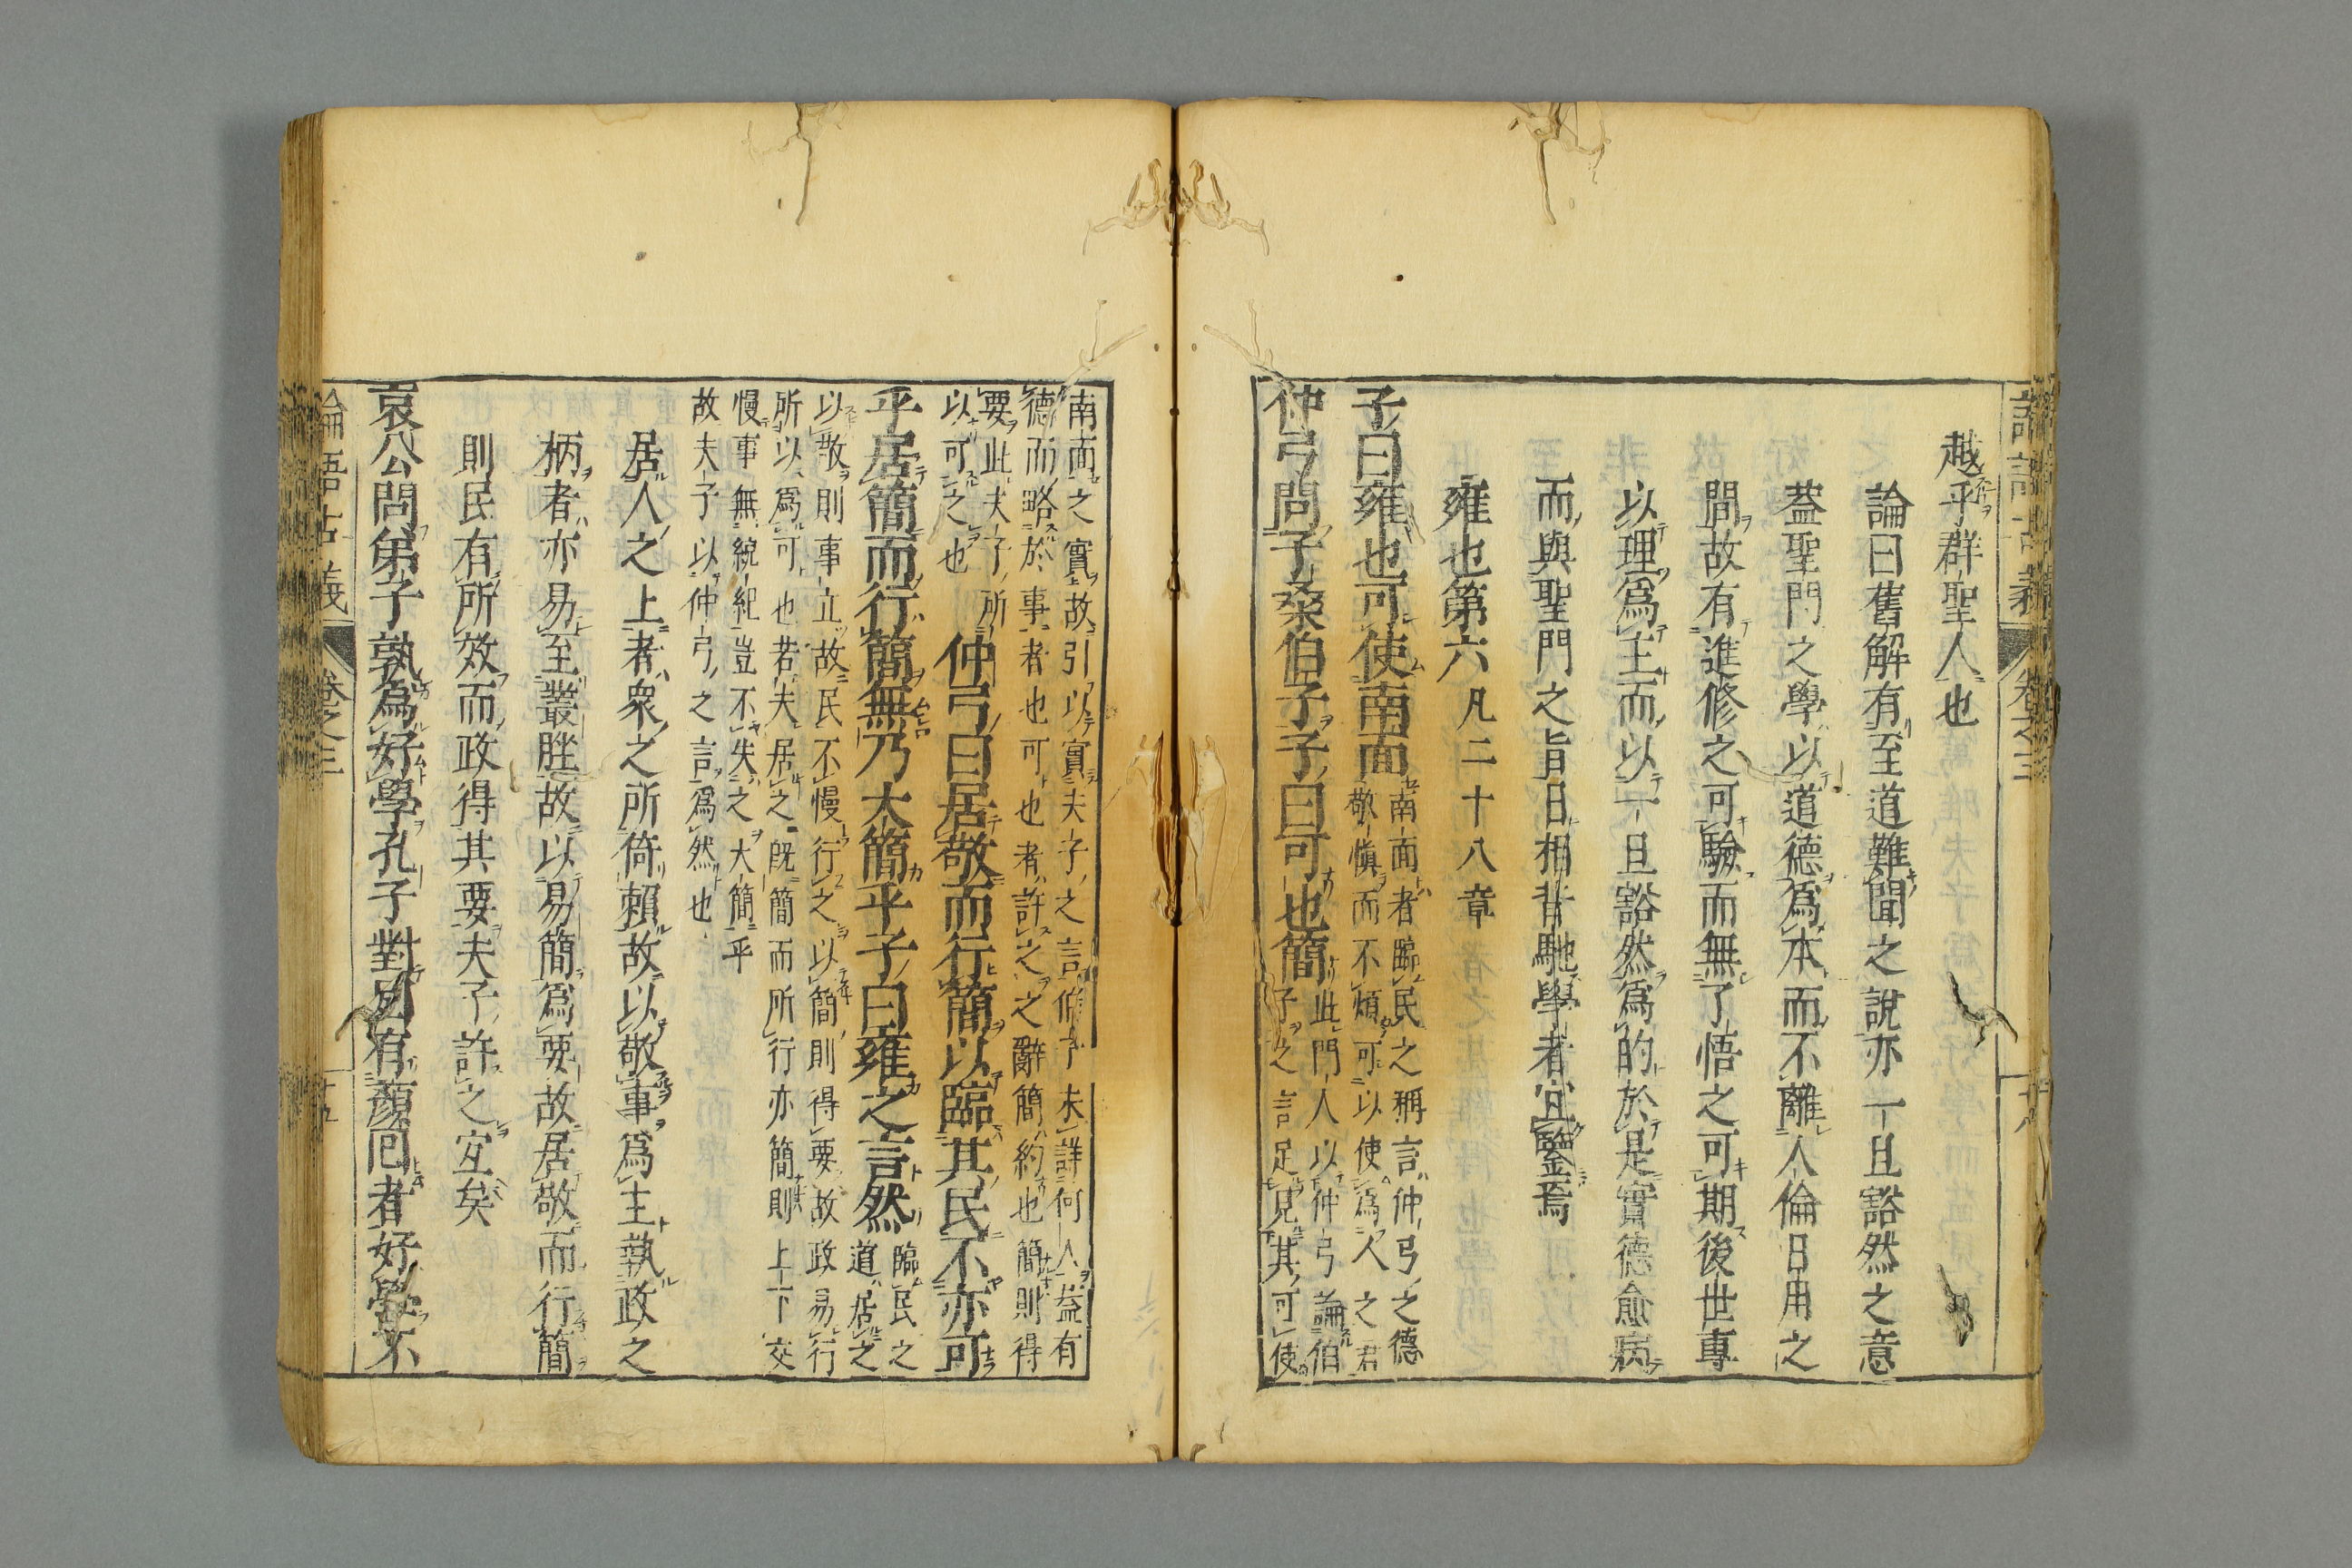 越乎群聖人也
論曰舊解有至道難聞之說亦一旦豁然之意
葢聖門之學以道德爲本而不離人倫日用之
間故有進修之可驗而無了悟之可期後世專
以理爲主而以一旦豁然爲的於是實德愈病
而與聖門之旨日相背馳學者宜鑒焉
雍也第六 凡二十八章
子曰雍也可使南面
南面者臨民之稱言仲弓之德
敬愼而不煩可以使爲人之君
仲弓問子桑伯子子曰可也簡
此門人以仲弓論伯
子之言足見其可使
南面之實故引以實夫子之言伯子未詳何人葢有
德而略於事者也可也者許之之辭簡約也簡則得
要此夫子所
以可之也
仲弓曰居敬而行簡以臨其民不亦可
乎居簡而行簡無乃大簡乎子曰雍之言然
臨民之
道居之
以敬則事立故民不慢行之以簡則得要故政易行
所以爲可也若夫居之既簡而所行亦簡則上下交
慢事無統紀豈不失之大簡乎
故夫子以仲弓之言爲然也
居人之上者衆之所倚賴故以敬事爲主執政之
柄者亦易至叢脞故以易簡爲要故居敬而行簡
則民有所效而政得其要夫子許之宜矣
哀公問弟子孰爲好學孔子對曰有顏回者好學不
論語古義 卷之三